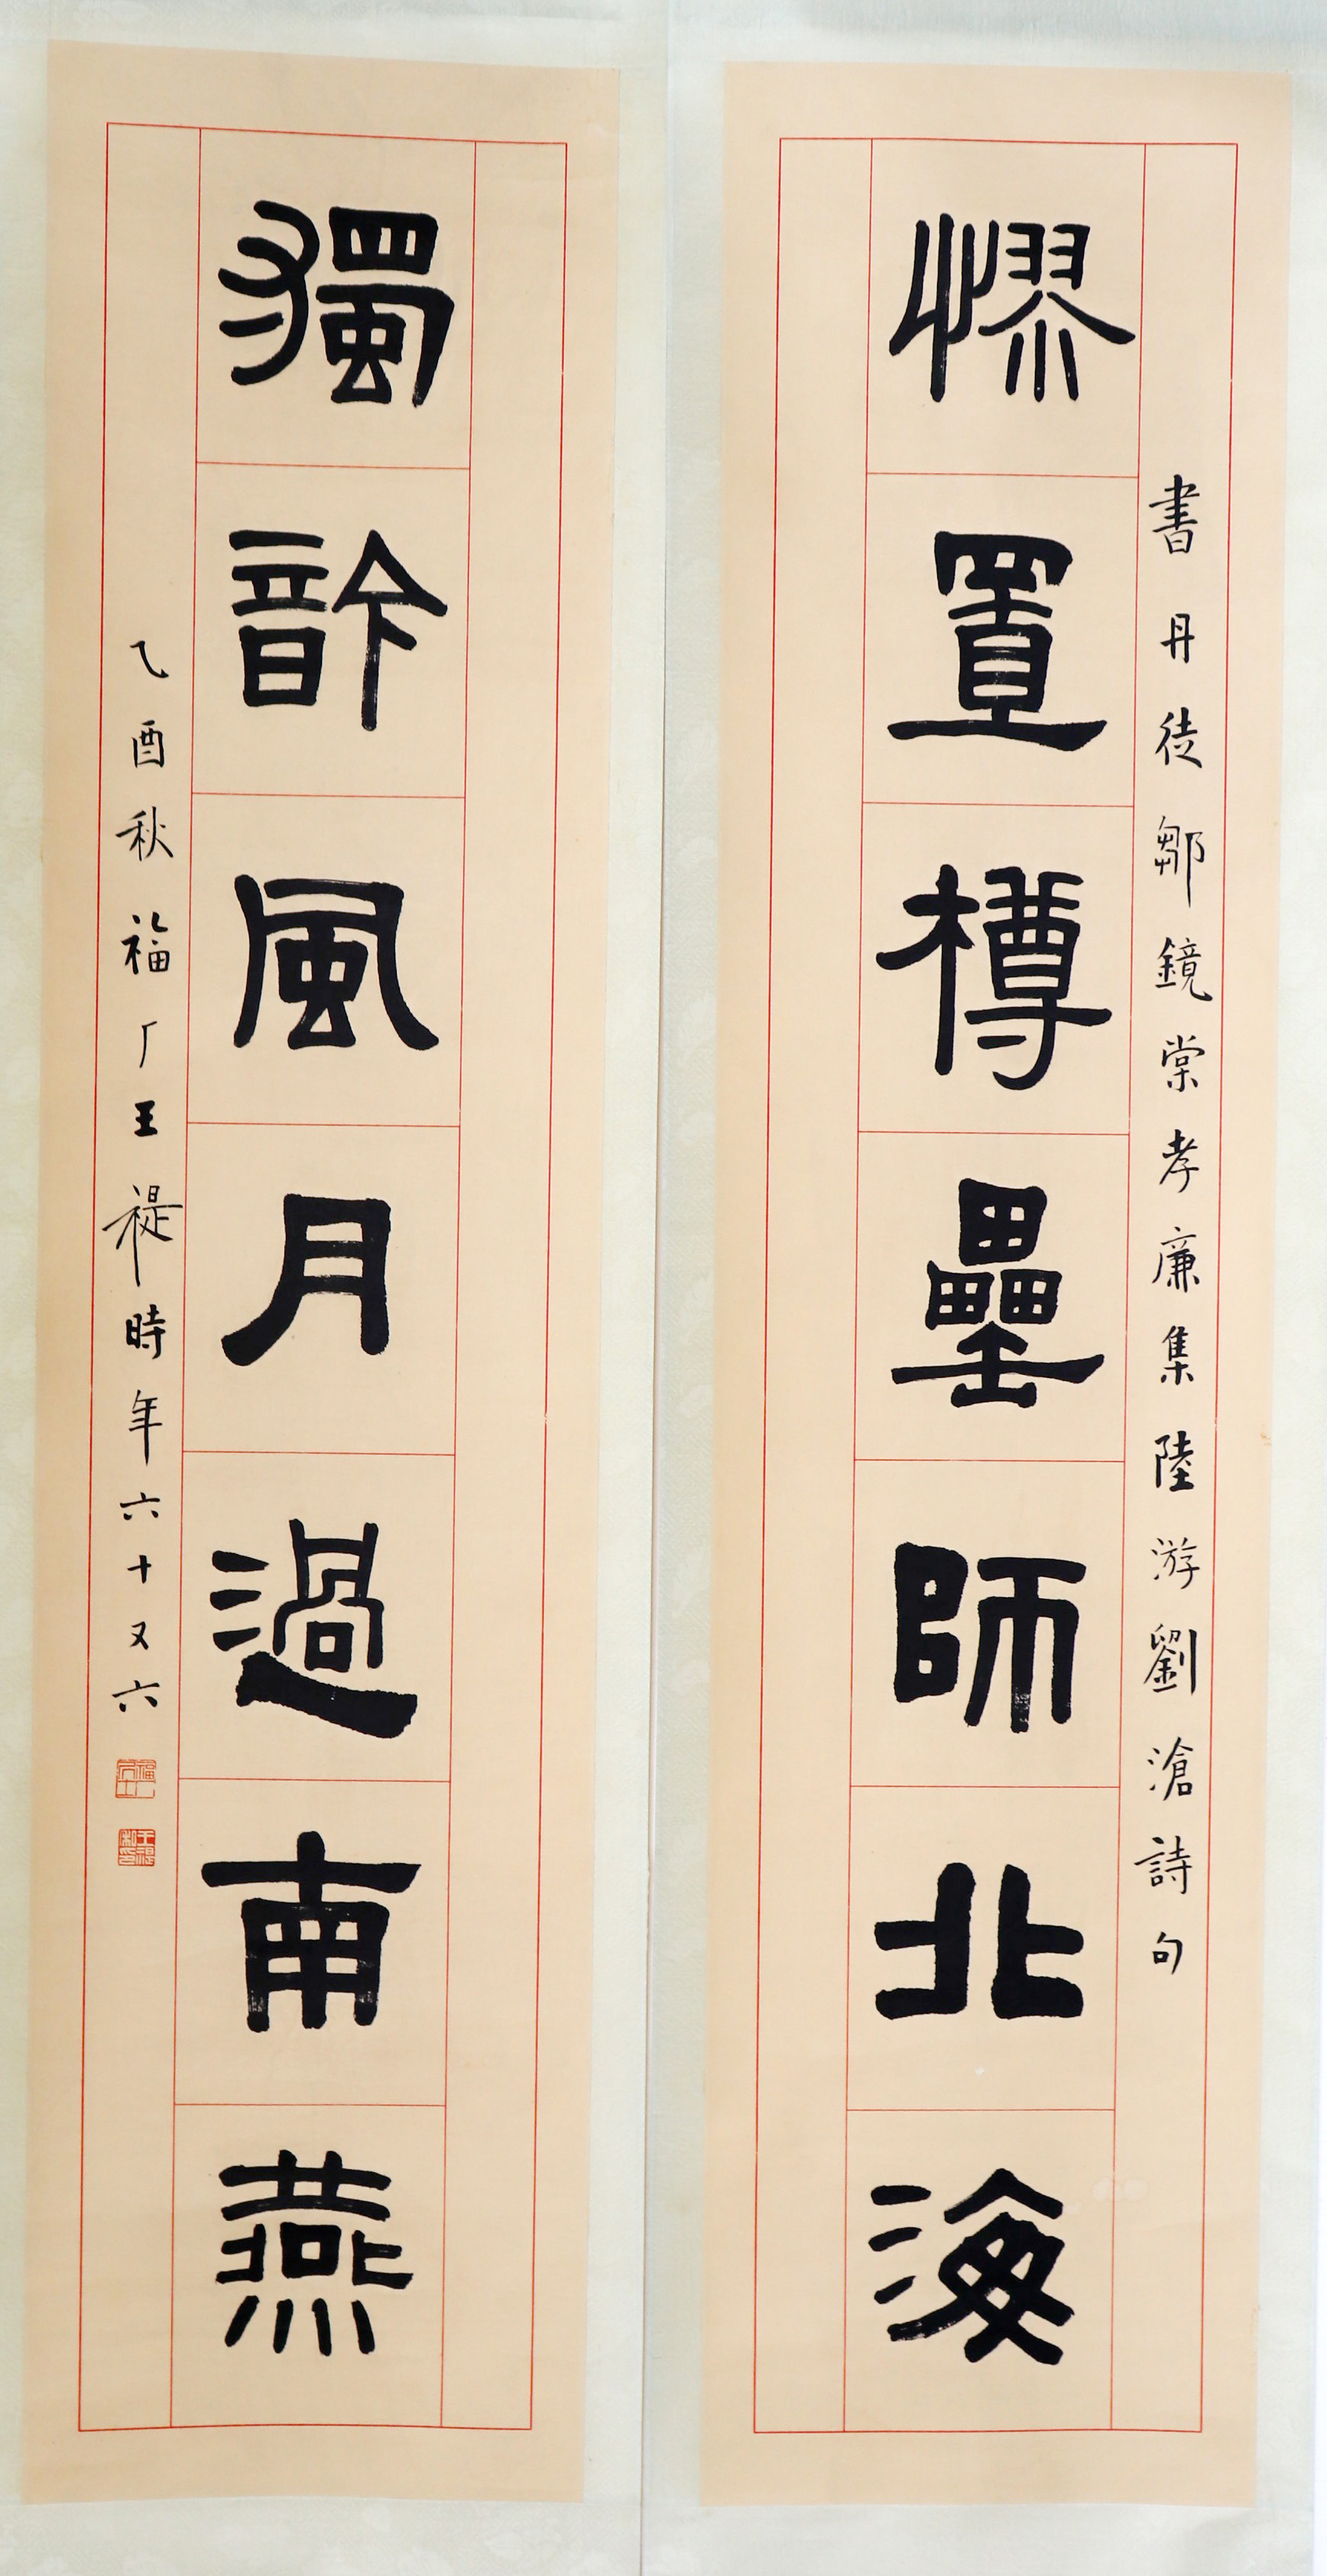 書丹徒鄒鏡棠孝廉集陸游劉滄詩句
憀置樽罍師北海
獨䪩風月過南燕
乙酉秋福厂王禔時年六十又六
福厂居士
王禔私印